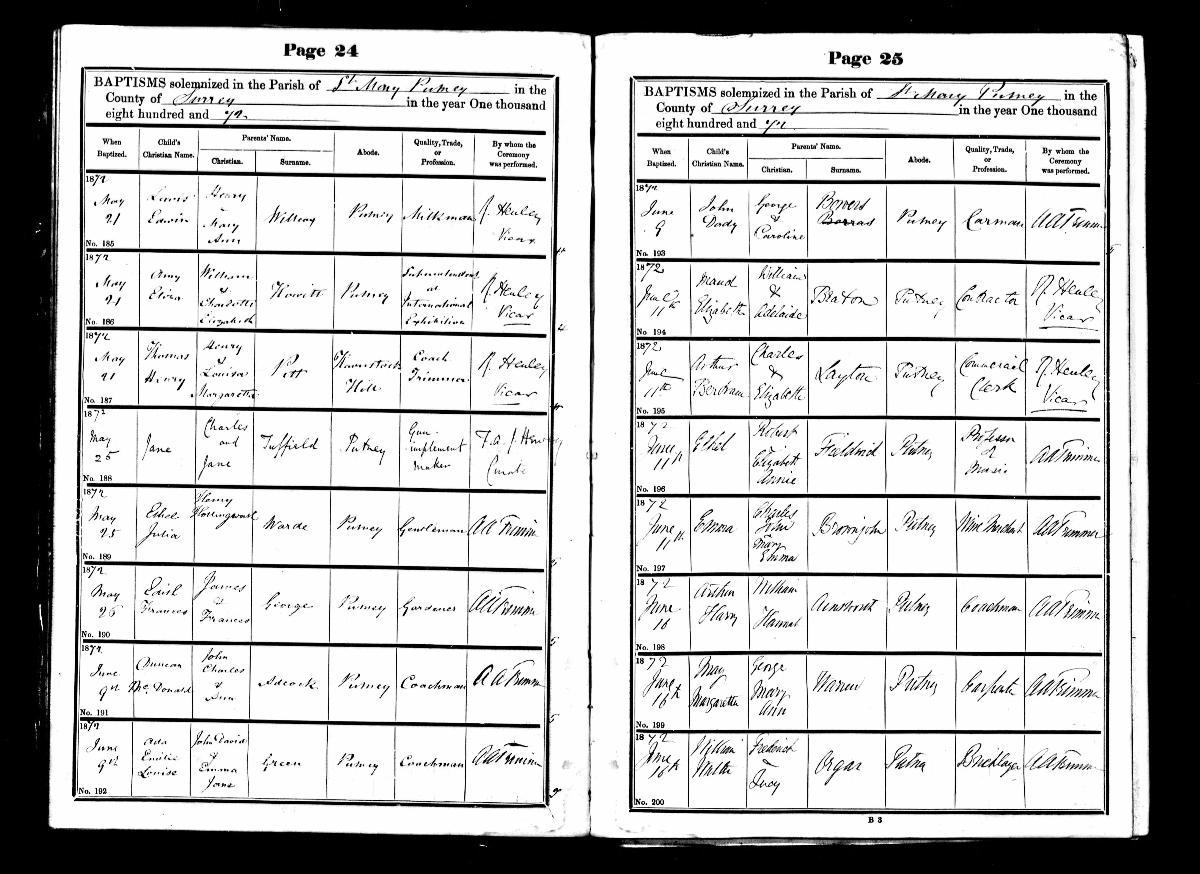 Page 24
BAPTISMS solemnized in the Parish of St. Mary Putney in the
County of Surrey in the year One thousand
eight hundred and 72
When Baptized. Child's Christian Name. Parents' Name. Christian. Surname. Abode. Quality, Trade, or Profession. By whom the Ceremony was performed.
1872 May 21 No. 185 Lewis Edwin Henry & Mary Ann Putney Milkman R. Henley Vicar
1872 May 21 No. 186 Amy Eliza William & Charlotte Elizabeth Howitt Putney Superintendent at International Exhibition R. Henley Vicar
1872 May 21 No. 187 Thomas Henry Henry & Louisa Margaretta Pitt Haverstock Hill Coach Trimmer R. Henley Vicar
1872 May 25 No. 188 Jane Charles and Jane Tuffield Putney Gun-implement maker Curate
1872 May 25 No. 189 Ethel Julia Henry Hollingworth Warde Putney Gentleman AATrimmer
1872 May 26 No. 190 Edith Frances James & Frances George Putney Gardener AATrimmer
1872 June 9th No. 191 Duncan McDonald John Charles & Ann Adcock Putney Coachman AATrimmer
1872 June 9th No. 192 Ada Emilie Louise John David & Emma Jane Green Putney Coachman AATrimmer
Page 25
BAPTISMS solemnized in the Parish of St. Mary Putney in the
County of Surrey in the year One thousand
eight hundred and 72
When Baptized. Child's Christian Name. Parents' Name. Christian. Surname. Abode. Quality, Trade, or Profession. By whom the Ceremony was performed.
1872 June 9 No. 193 John Dady George & Caroline Bowers Putney Carman AATrimmer
1872 June 11th No. 194 Maud Elizabeth William & Adelaide Putney Contractor R. Henley Vicar
1872 June 11th No. 195 Arthur Bertram Charles & Elizabeth Layton Putney Commercial Clerk R. Henley Vicar
1872 June 11th No. 196 Ethel Robert Elizabeth Annie Fieldwick Putney Professor of Music AATrimmer
1872 June 11th No. 197 Emma Charles John Mary Emma Brownjohn Putney Wine Merchant AATrimmer
1872 June 16 No. 198 Arthur Harry William Hannah Ainsworth Putney Coachman AATrimmer
1872 June 16th No. 199 May Margaretta George Mary Ann Warren Putney Carpenter AATrimmer
1872 June 16th No. 200 William Walter Frederick Lucy Orgar Putney Bricklayer AATrimmer
B 3